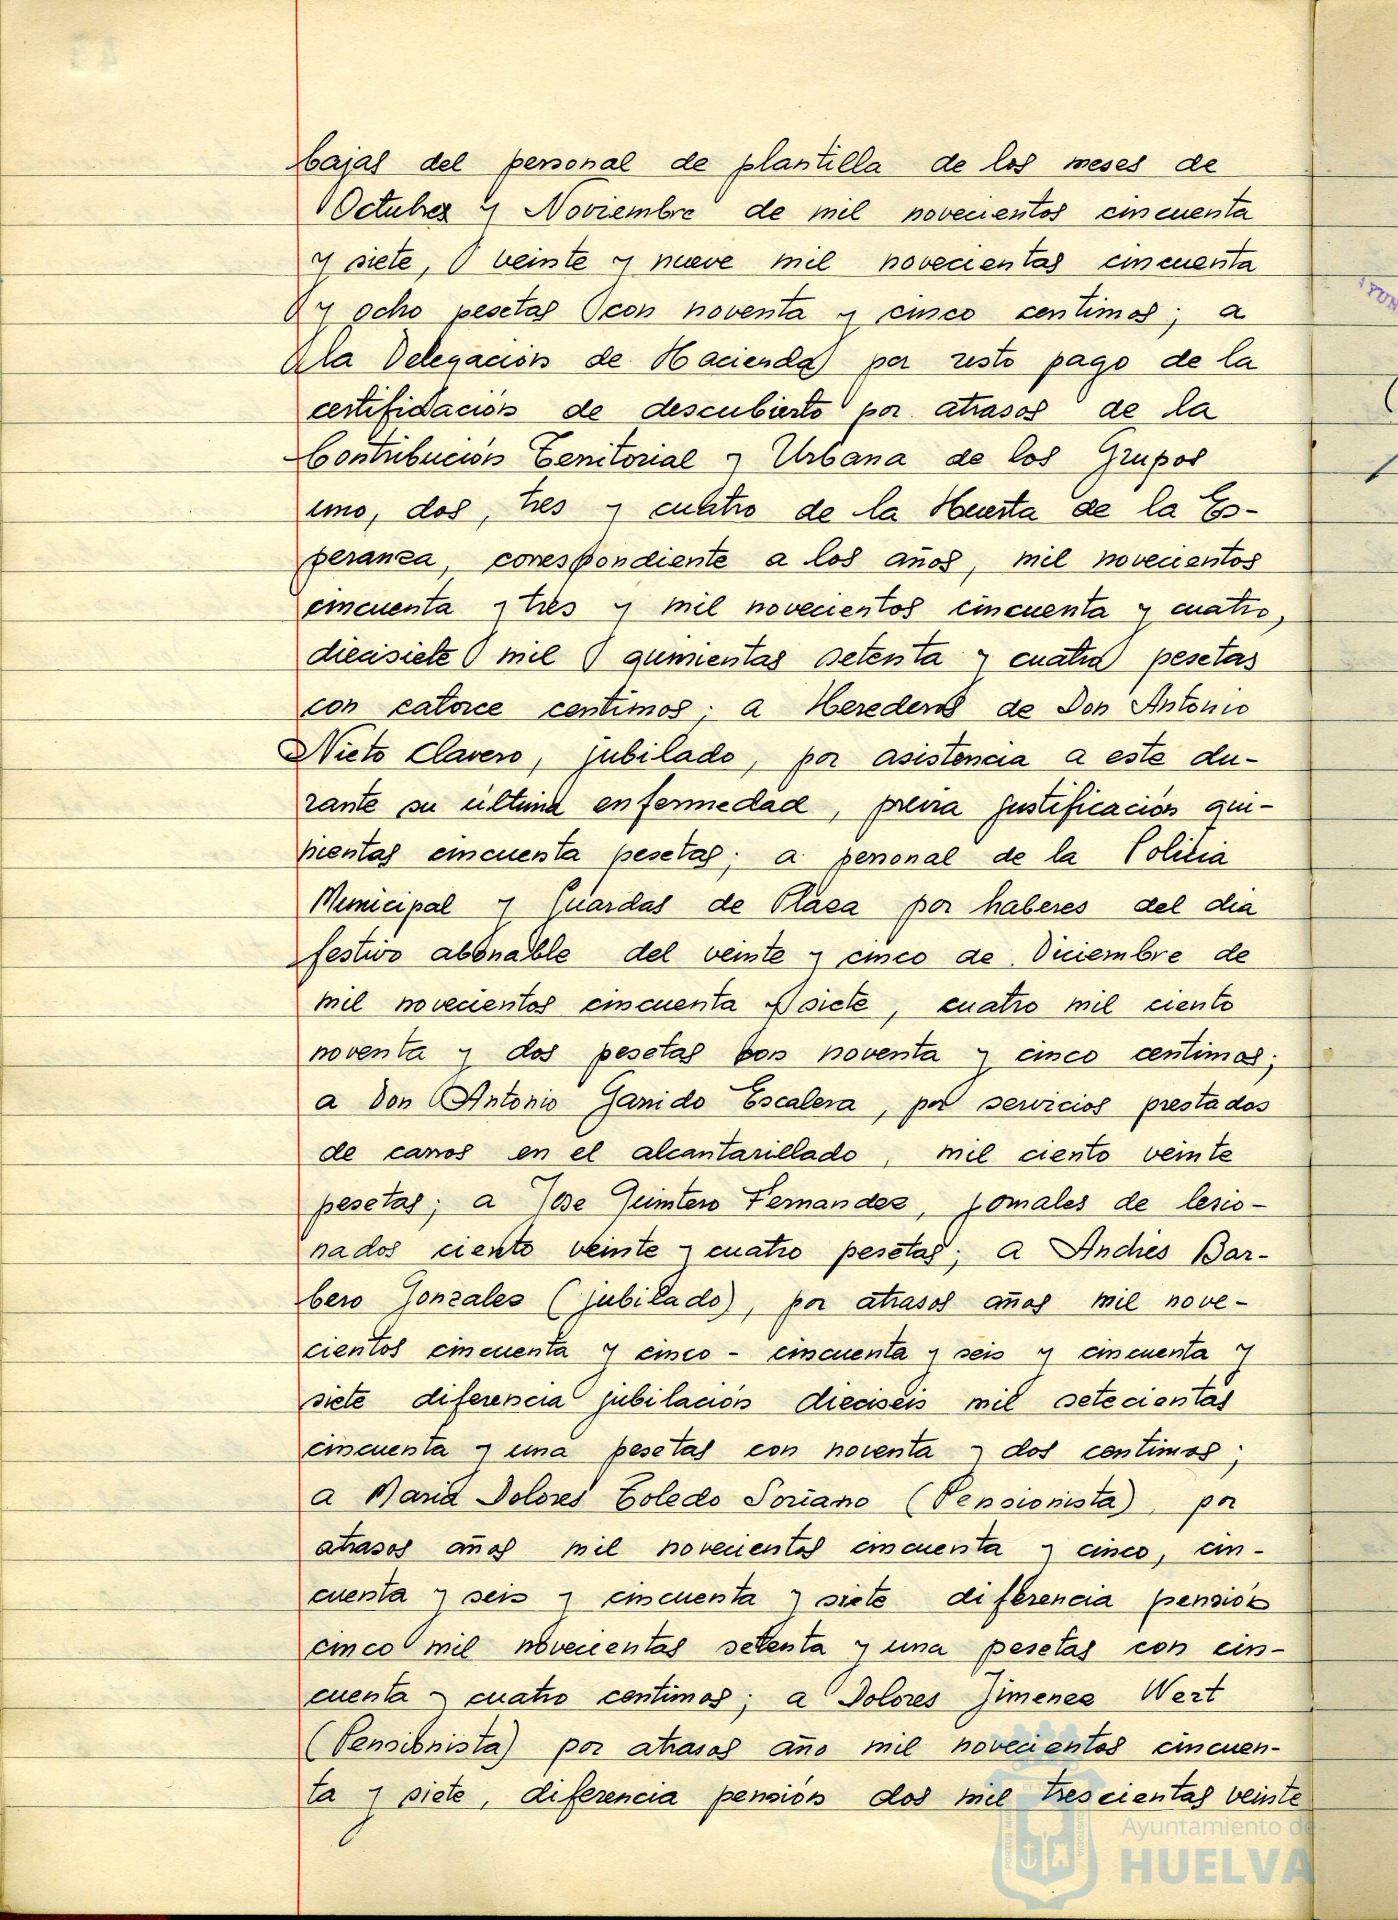 bajas del personal de plantilla de los meses de
Octubre y Noviembre de mil novecientos cincuenta
y siete, veinte y nueve mil novecientas cincuenta
y ocho pesetas con noventa y cinco centimos; a
la Delegación de Hacienda por resto pago de la
certificación de descubierto por atrasos de la
Contribución Territorial y Urbana de los Grupos
uno, dos, tres y cuatro de la Huerta de la Es-
peranza, correspondiente a los años, mil novecientos
cincuenta y tres y mil novecientos cincuenta y cuatro,
diecisiete mil quinientas setenta y cuatro pesetas
con catorce centimos; a Herederos de Don Antonio
Nieto Clavero, jubilado, por asistencia a este du-
rante su última enfermedad, previa justificación qui-
nientas cincuenta pesetas; a personal de la Policia
Municipal y Guardas de Plaza por haberes del dia
festivo abonable del veinte y cinco de Diciembre de
mil novecientos cincuenta y siete, cuatro mil ciento
noventa y dos pesetas con noventa y cinco centimos;
a Don Antonio Garrido Escalera, por servicios prestados
de carros en el alcantarillado, mil ciento veinte
pesetas; a Jose Quintero Fernandez, jornales de lesio-
nados ciento veinte y cuatro pesetas; a Andrés Bar-
bero Gonzalez (jubilado), por atrasos años mil nove-
cientos cincuenta y cinco - cincuenta y seis y cincuenta y
siete diferencia jubilación dieciseis mil setecientas
cincuenta y una pesetas con noventa y dos centimos;
a Maria Dolores Toledo Soriano (Pensionista), por
atrasos años mil novecientos cincuenta y cinco, cin-
cuenta y seis y cincuenta y siete diferencia pensión
cinco mil novecientas setenta y una pesetas con cin-
cuenta y cuatro centimos; a Dolores Jimenez Wert
(Pensionista) por atrasos año mil novecientos cincuen-
ta y siete, diferencia pensión dos mil trescientas veinte
Ayuntamiento de
HUELVA